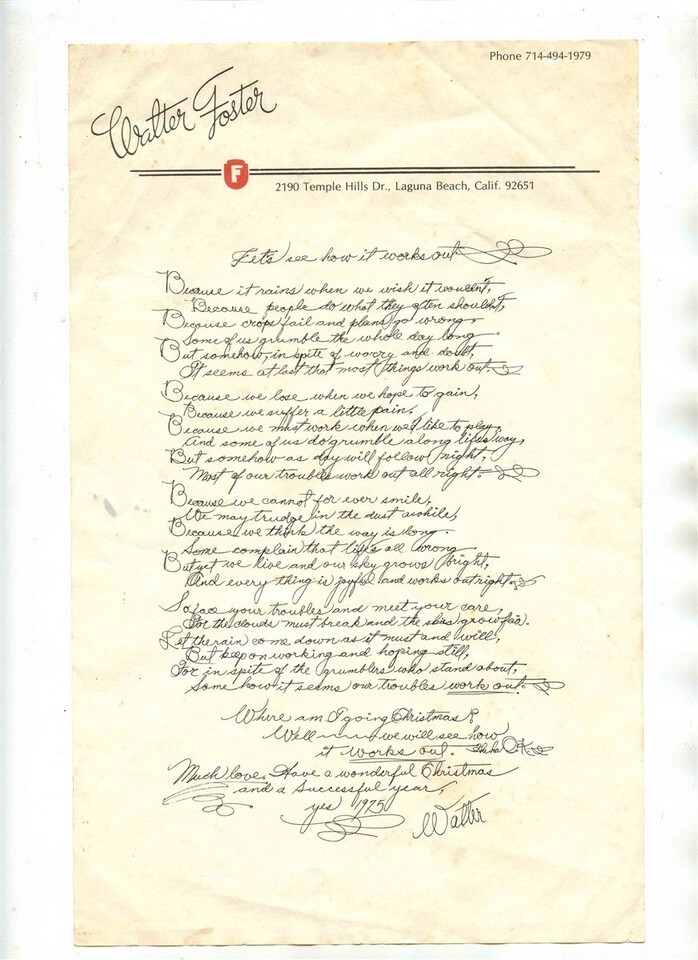 Phone 714-494-1979
Walter Foster
F
2190 Temple Hills Dr., Laguna Beach, Calif. 92651
Let's see how it works out
Because it rains when we wish it wouldn't,
Because people do what they often shouldn't,
Because crops fail and plans go wrong
Some of us grumble the whole day long.
But somehow, in spite of worry and doubt,
It seems at last that most things work out.
Because we lose when we hope to gain,
Because we suffer a little pain,
Because we must work when we'd like to play,
And some of us do grumble along life's way,
But somehow as day will follow night,
Most of our troubles work out all right.
Because we cannot for ever smile,
We may trudge in the dust awhile,
Because we think the way is long
Some complain that life's all wrong
But yet we live and our sky grows bright,
And every thing is joyful and works out right
So face your troubles and meet your care,
For the clouds must break and the skies grow fair.
Let the rain come down as it must and will,
But keep on working and hoping still,
For in spite of the grumblers who stand about,
Some how it seems our troubles work out.
Where am I going Christmas?
Well we will see how
it works out. Ha ha OK
Much love. Have a wonderful Christmas
and a Successful year,
yes 1975
Walter